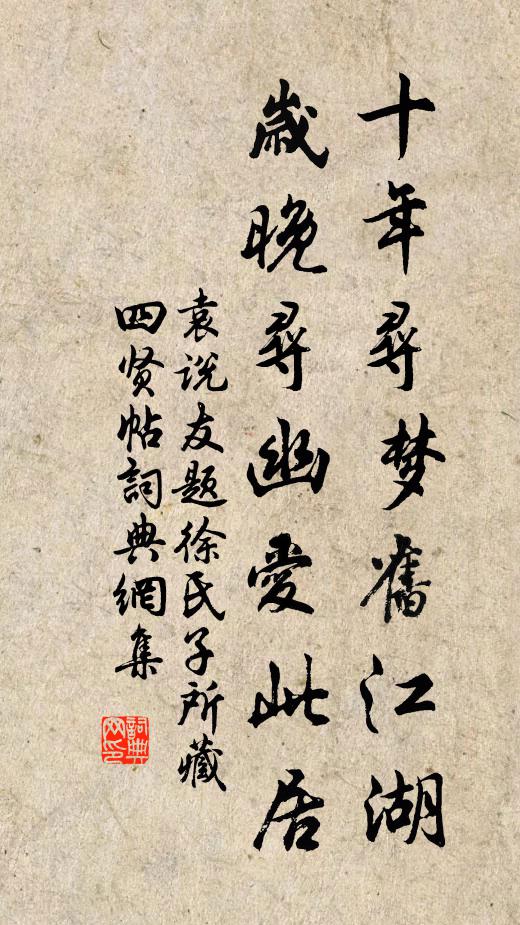 十年尋梦舊江湖
歲晚尋幽愛此居
袁说友题徐氏子所藏
四贤帖詞典網集
詞典网印